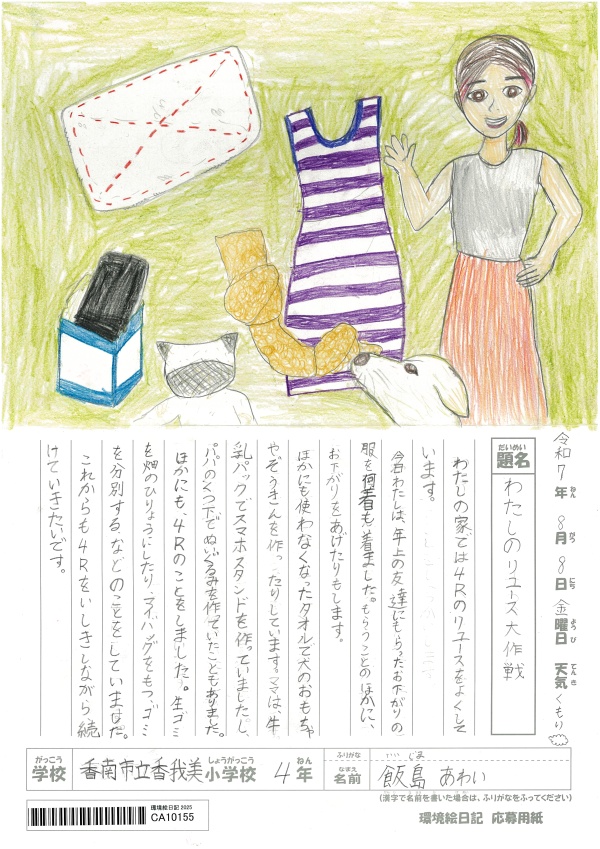 令和7年 8月 8日 金曜日 天気 くもり
ねん がつ にち ようび てんき
だいめい
題名 わたしのリユース大作戦
わたしの家では4Rのリユースをよくして
います。
今日わたしは、年上の友達にもらったお下がりの
服を何着も着ました。もらうことのほかに、
お下がりをあげたりもします。
ほかにも使わなくなったタオルで犬のおもちゃ
やぞうきんを作ったりしています。ママは、牛
乳パックでスマホスタンドを作っていましたし、
パパのくつ下でぬいぐるみを作っていたこともありました。
ほかにも、4Rのことをしました。生ゴミ
を畑のひりょうにしたり、マイバッグをもつ、ゴミ
を分別するなどのことをしていました。
これからも4Rをいしきしながら続
けていきたいです。
がっこう しょうがっこう ねん
学校 香南市立香我美小学校 4年
ふりがな いいじま
なまえ
名前 飯島 あわい
(漢字で名前を書いた場合は、ふりがなをふってください)
環境絵日記 2025
CA10155
環境絵日記 応募用紙